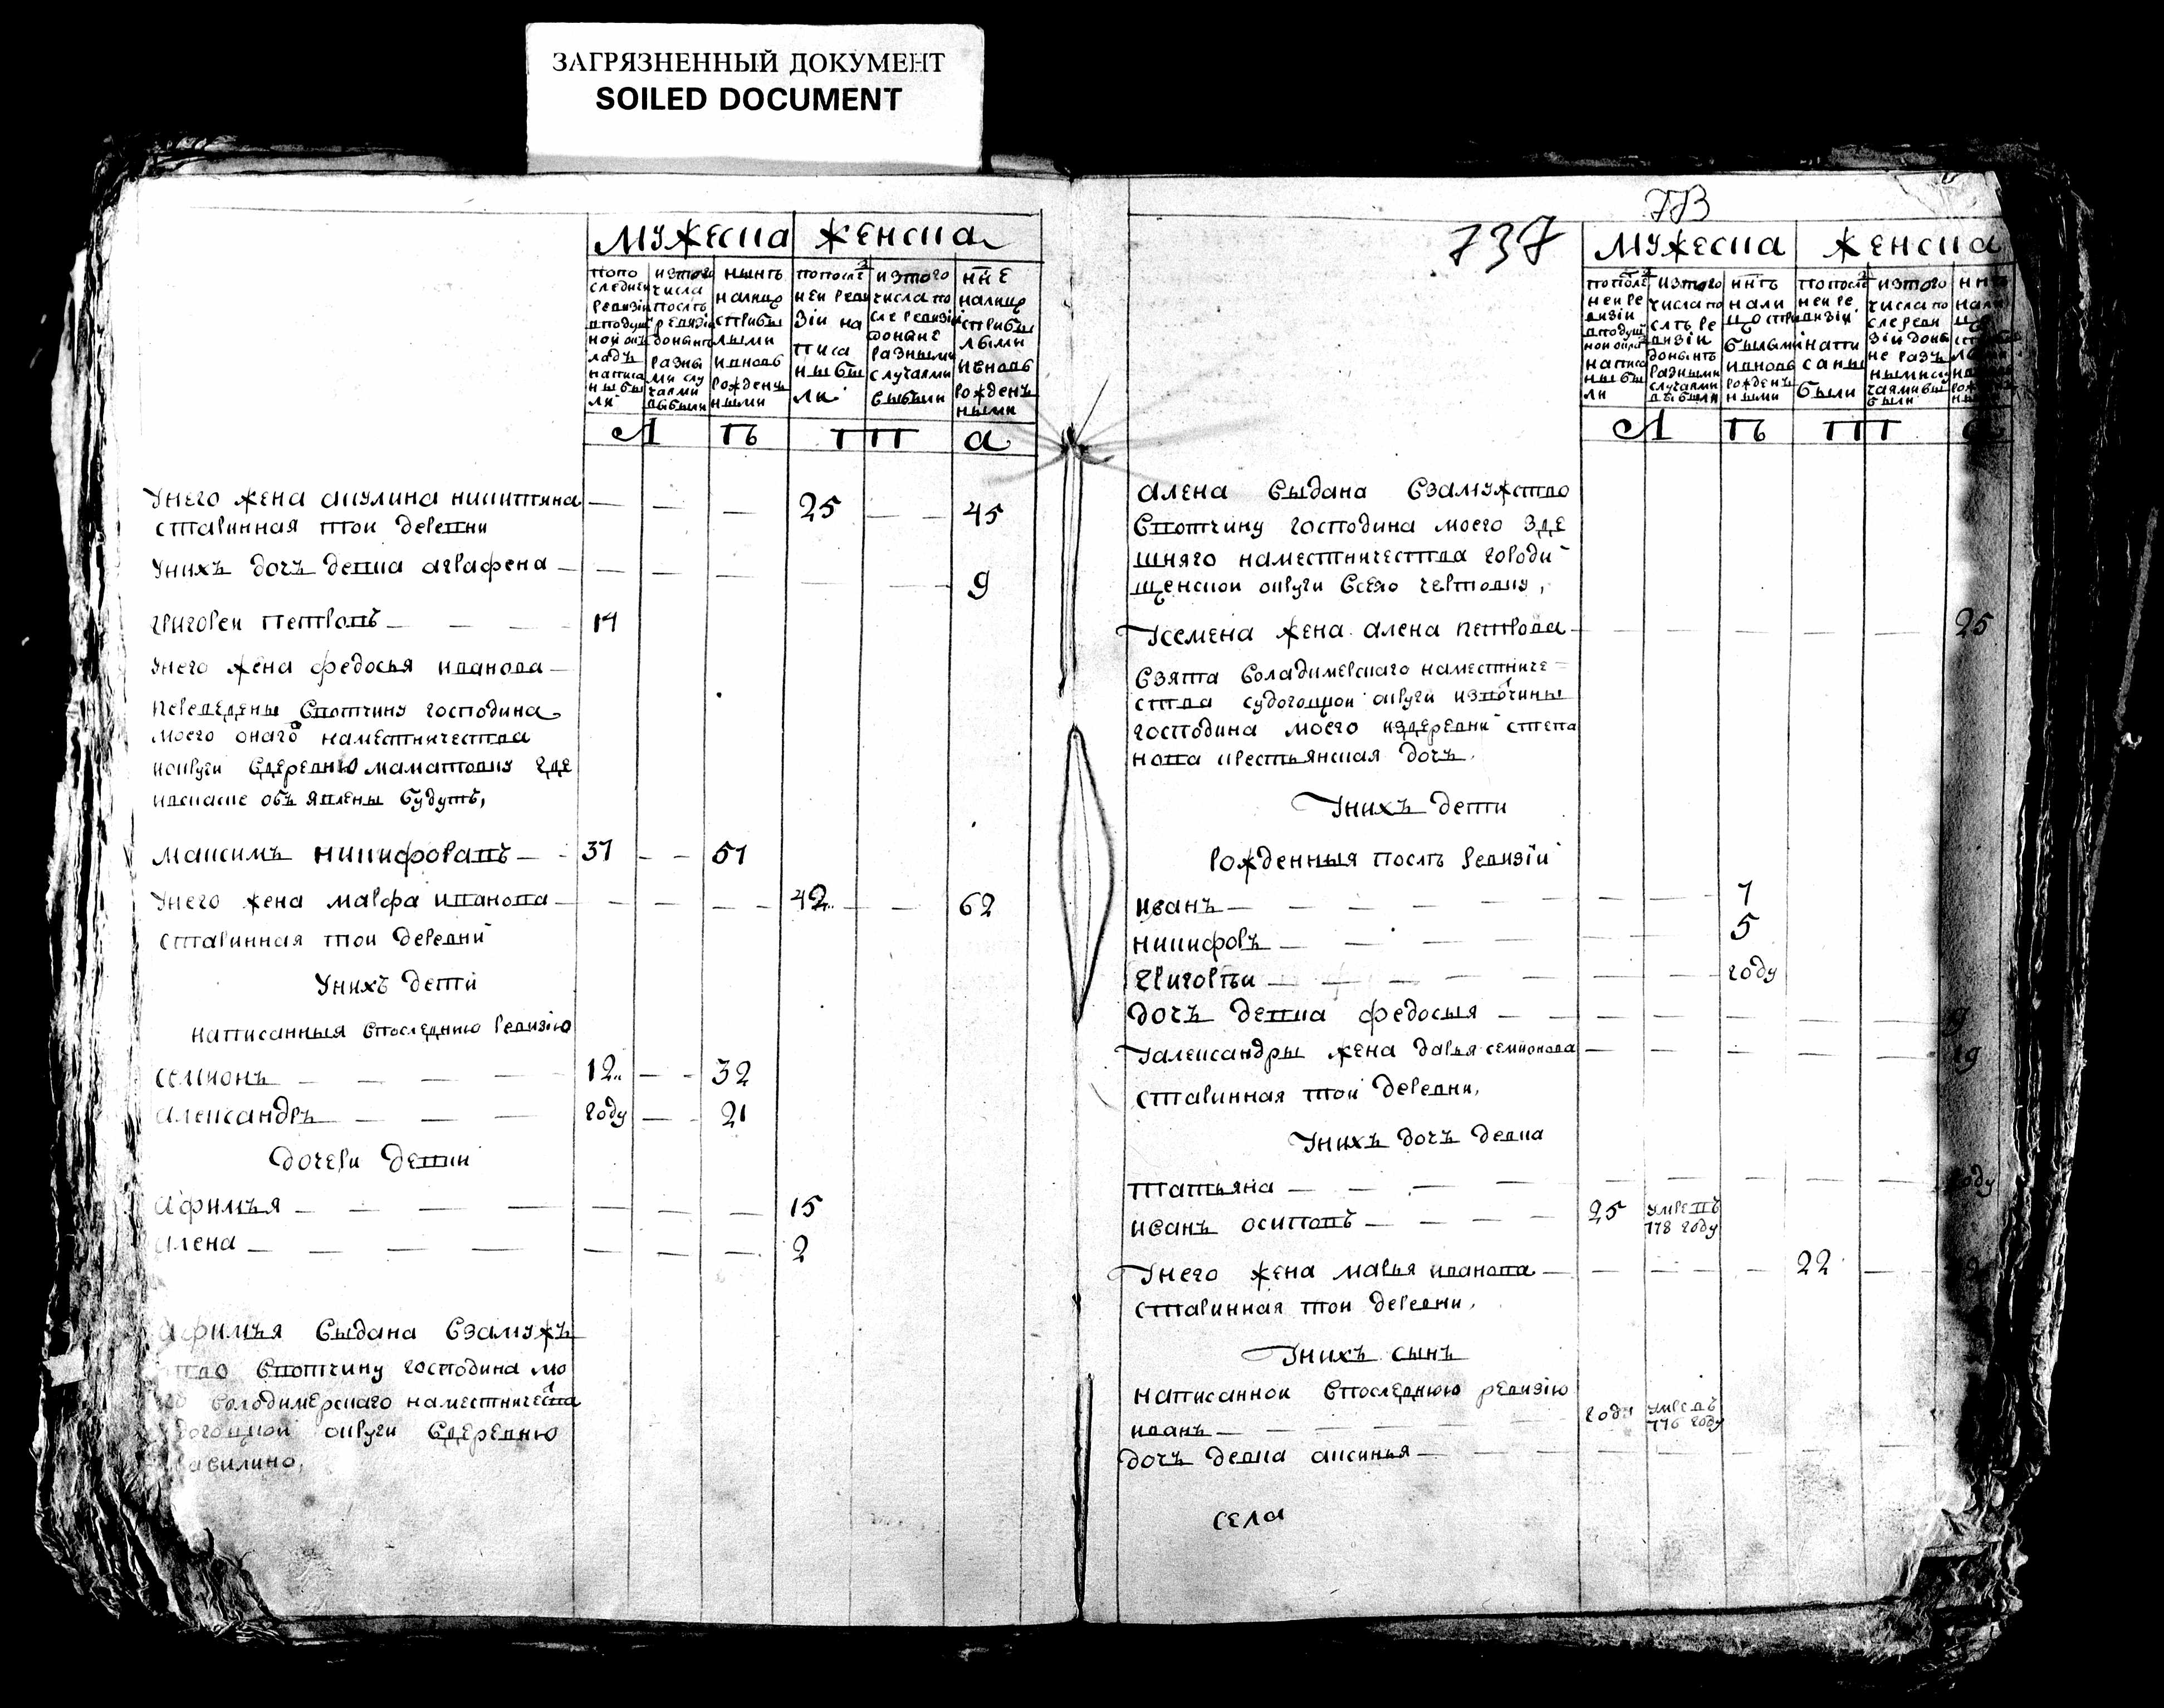 ЗАГРЯЗНЕННЫЙ ДОКУМЕНТ
SOILED DOCUMENT
мужеска женска
попо следнеи ревизіи вподушнои окладъ написаны были
изтого числа послѣ ревизіи донынѣ разными случаями выбыли
нынѣ налицо сприбылыми ивновь рожденными
попоследнеи ревизіи написаны были
изтого числа после ревизіи доныне разными случаями выбыли
нне налицо сприбылыми ивновь рожденными
Л Ѣ Т а
унего жена акулина никитина — — — 25 — — 45
старинная тои деревни
унихъ дочъ девка аграфена — — — — — — 9
григореи петровъ — — — 14
унего жена федосья иванова —
переведены ввотчину господина
моего онаго наместничества
иокруги вдеревню маматовку где
ивсказке объявлены будутъ,
максимъ никифоровъ — — 31 — — 51
унего жена марфа иванова — — — — — 42 — — 62
старинная тои деревни
унихъ дети
написанныя впоследнюю ревизію
семионъ — — — — 12 — — 32
александръ — — — году — — 21
дочери девки
афимъя — — — — — — — — 15
алена — — — — — — — 2
афимъя выдана взамужъ
тво ввотчину господина мо
его володимерскаго наместничества
судогоцкои округи вдеревню
737
мужеска женска
попоследнеи ревизіи вподушнои окладъ написаны были
изтого числа послѣ ревизіи донынѣ разными случаями выбыли
ннѣ налицо сприбылыми ивновь рожденными
попоследнеи ревизіи написаны были
изтого числа послереви зіи доныне разными случаями выбыли
Л Ѣ Т
алена выдана взамужство
ввотчину господина моего зде
шняго наместничества городи
щенскои округи всело чертовку,
усемена жена алена петрова — — — — — 25
взята воладимерскаго наместниче
ства судогоцкои округи извотчины
господина моего издеревни степа
нова крестьянская дочъ.
унихъ дети
рожденныя послѣ ревизіи
иванъ — — — — — — — 7
никифоръ — — — — — — 5
григорѣи — — — — — году
дочъ девка федосья — — — — — — — 9
уалександры жена дарья семионова — — — — — 19
старинная тои деревни,
унихъ дочъ девка
татьяна — — — — — — — — — году
иванъ осиповъ — — — — 25 умрѣ въ 778 году
унего жена марья иванова — — — — 22 —
старинная тои деревни.
унихъ сынъ
написаннои впоследнюю ревизію
иванъ — — — — — — году умре въ 776 году
дочъ девка аксинья — — — — — —
села